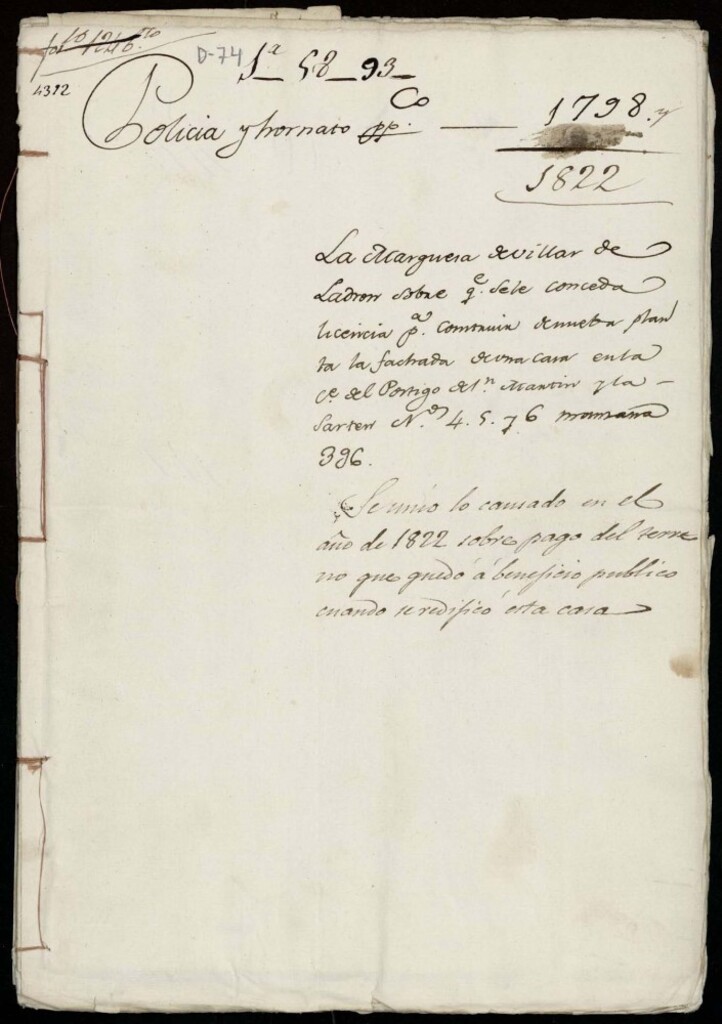 D-74
1ª_58_93_
4312
Policia y hornato pp.co — 1798. y
1822
La Marquesa de villar de
Ladron sobre q.e se le conceda
licencia p.a construir de nueba plan
ta la fachada de una casa en la
c.e del Postigo de Sn. Martin y la
Sarten N.os 4. 5. y 6 manzana
396.
Se unió lo causado en el
año de 1822 sobre pago del terre
no que quedó á beneficio publico
cuando se redificó esta casa